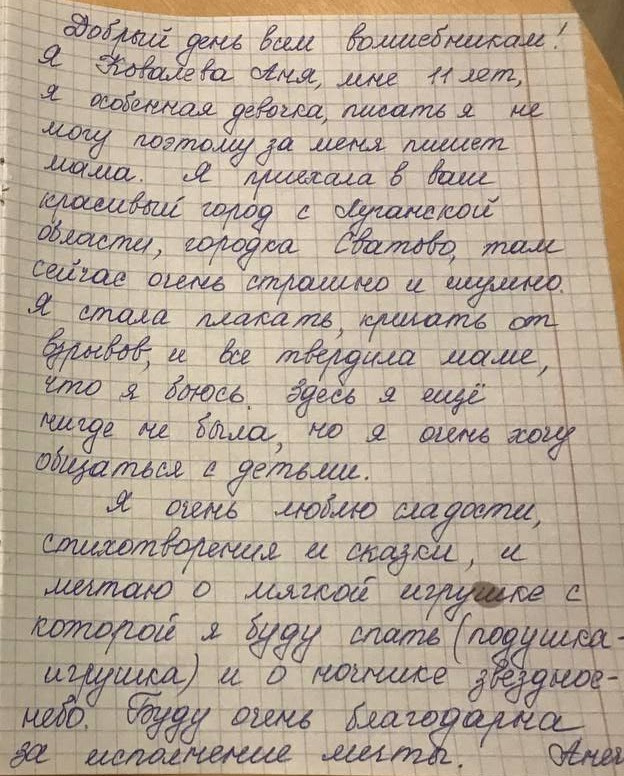 Добрый день всем волшебникам!
Я Ковалева Аня, мне 11 лет,
я особенная девочка, писать я не
могу поэтому за меня пишет
мама. Я приехала в ваш
красивый город с Луганской
области, городка Сватово, там
сейчас очень страшно и шумно.
Я стала плакать, кричать от
взрывов, и все твердила маме,
что я боюсь. Здесь я ещё
нигде не была, но я очень хочу
общаться с детьми.
Я очень люблю сладости,
стихотворения и сказки, и
мечтаю о мягкой игрушке с
которой я буду спать (подушка-
игрушка) и о ночнике звездное-
небо. Буду очень благодарна
за исполнение мечты. Аня